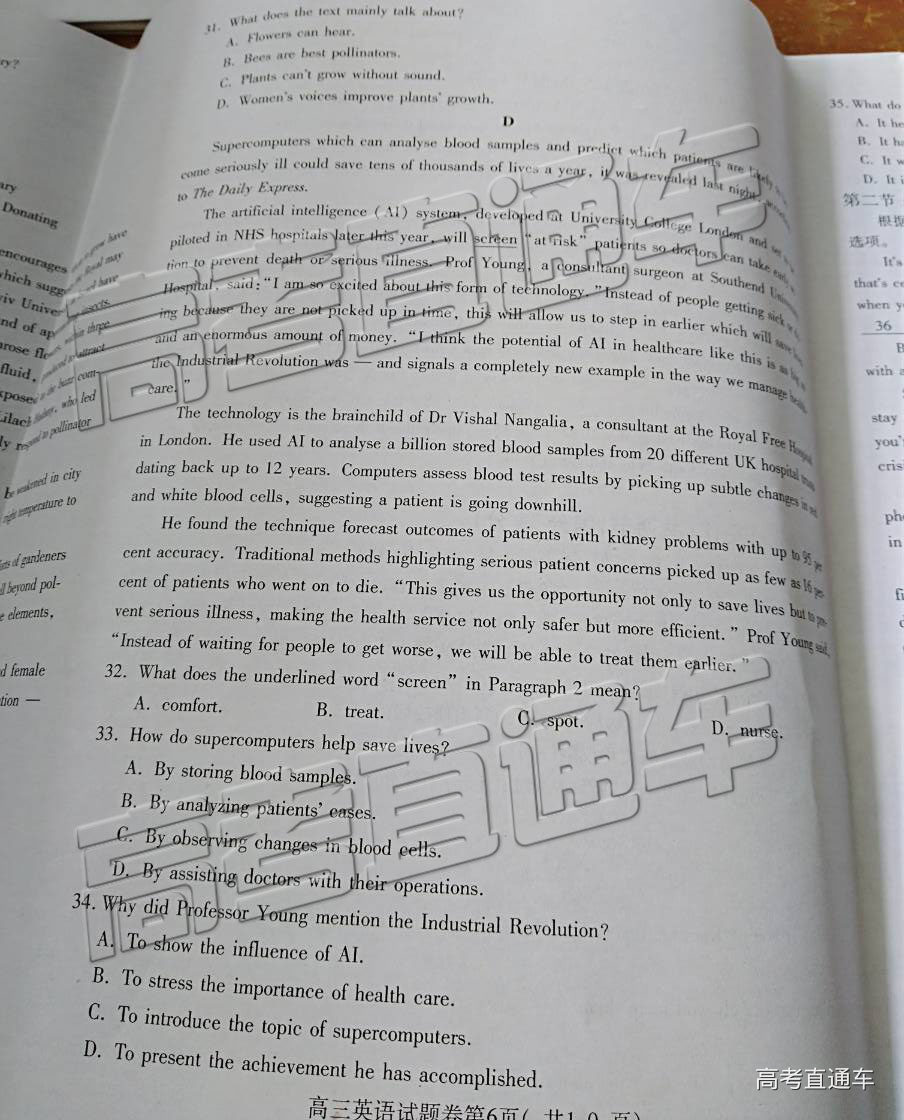 31. What does the text mainly talk about?
A. Flowers can hear.
B. Bees are best pollinators.
C. Plants can't grow without sound.
D. Women's voices improve plants' growth.
D
Supercomputers which can analyse blood samples and predict which patients are likely
come seriously ill could save tens of thousands of lives a year, it was revealed last night,
to The Daily Express.
The artificial intelligence (AI) system, developed at University College London and
piloted in NHS hospitals later this year, will screen "at risk" patients so doctors can take
tion to prevent death or serious illness. Prof Young, a consultant surgeon at Southend
Hospital, said: "I am so excited about this form of technology." Instead of people getting sick
ing because they are not picked up in time, this will allow us to step in earlier which will save
and an enormous amount of money. "I think the potential of AI in healthcare like this is as
the Industrial Revolution was — and signals a completely new example in the way we manage health
care."
The technology is the brainchild of Dr Vishal Nangalia, a consultant at the Royal Free Hospital
in London. He used AI to analyse a billion stored blood samples from 20 different UK hospital
dating back up to 12 years. Computers assess blood test results by picking up subtle changes in red
and white blood cells, suggesting a patient is going downhill.
He found the technique forecast outcomes of patients with kidney problems with up to 95 per
cent accuracy. Traditional methods highlighting serious patient concerns picked up as few as 16 per
cent of patients who went on to die. "This gives us the opportunity not only to save lives but to pre-
vent serious illness, making the health service not only safer but more efficient." Prof Young said,
"Instead of waiting for people to get worse, we will be able to treat them earlier."
32. What does the underlined word "screen" in Paragraph 2 mean?
A. comfort. B. treat. C. spot. D. nurse.
33. How do supercomputers help save lives?
A. By storing blood samples.
B. By analyzing patients' cases.
C. By observing changes in blood cells.
D. By assisting doctors with their operations.
34. Why did Professor Young mention the Industrial Revolution?
A. To show the influence of AI.
B. To stress the importance of health care.
C. To introduce the topic of supercomputers.
D. To present the achievement he has accomplished.
高三英语试题卷第6页(共10页)
35. What do
A. It he
B. It ha
C. It w
D. It i
第二节
根据
选项。
It's
that's ce
when y
36
B
with a
stay
you'
cris
ph
in
ry?
ary
Donating
encourages
which sugg
iv Univer
nd of ap
arose fle
fluid,
Lilach
in city
temperature to
of gardeners
beyond pol-
elements,
d female
tion —
高考直通车
高考直通车
高考直通车